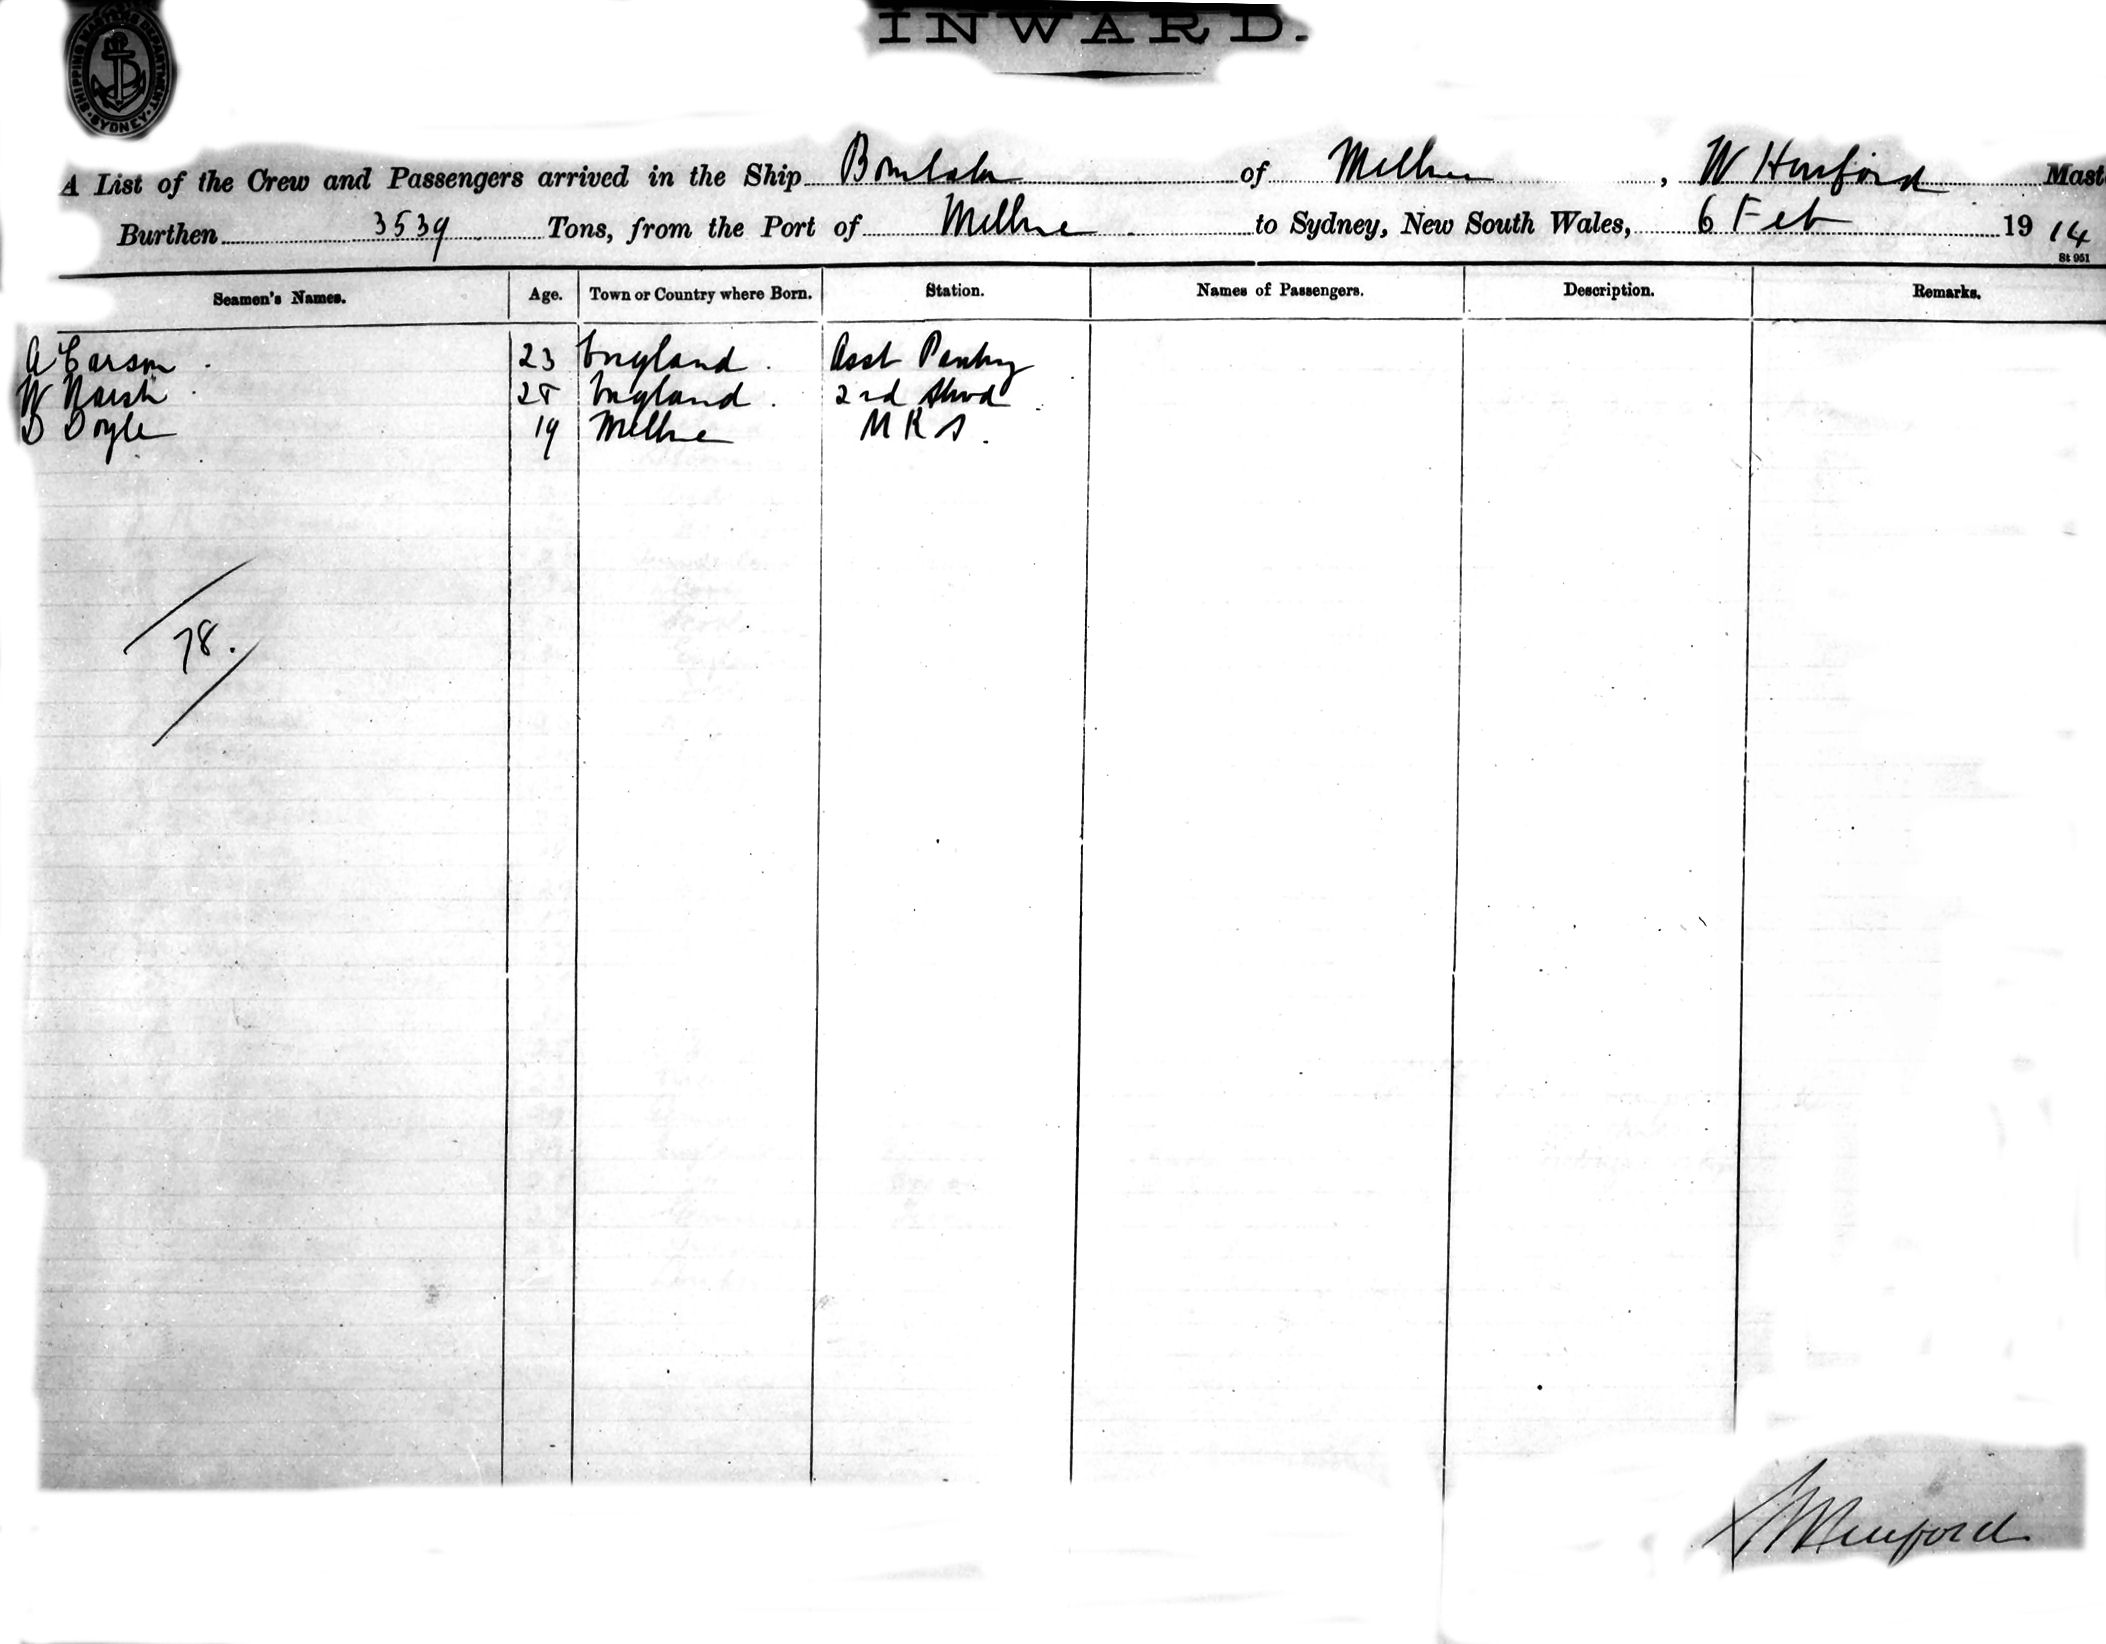 INWARD.
SHIPPING MASTER'S DEPARTMENT SYDNEY
A List of the Crew and Passengers arrived in the Ship Bombala of Melbne, W Hurford Mast
Burthen 3539 Tons, from the Port of Melbne to Sydney, New South Wales, 6 Feb 1914
St 951
Seamen's Names. Age. Town or Country where Born. Station. Names of Passengers. Description. Remarks.
A Carson 23 England Asst Pantry
W Marsh 28 England 2nd Stwd
D Doyle 19 Melbne M R S.
78.
W Hurford